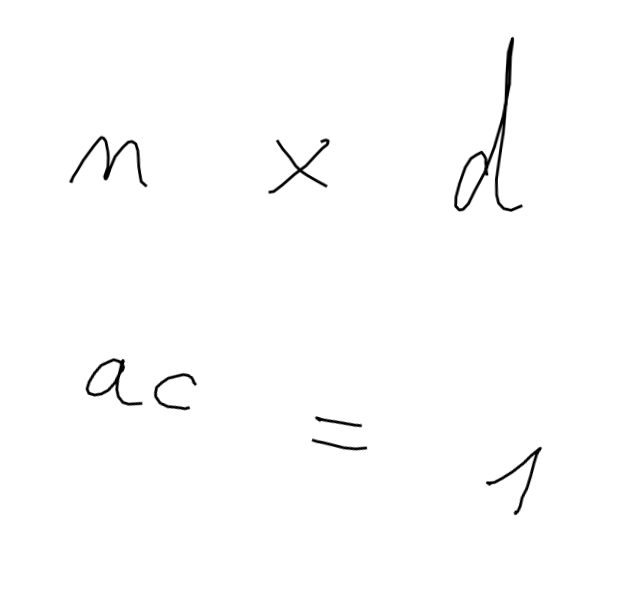 n × d
ac = 1